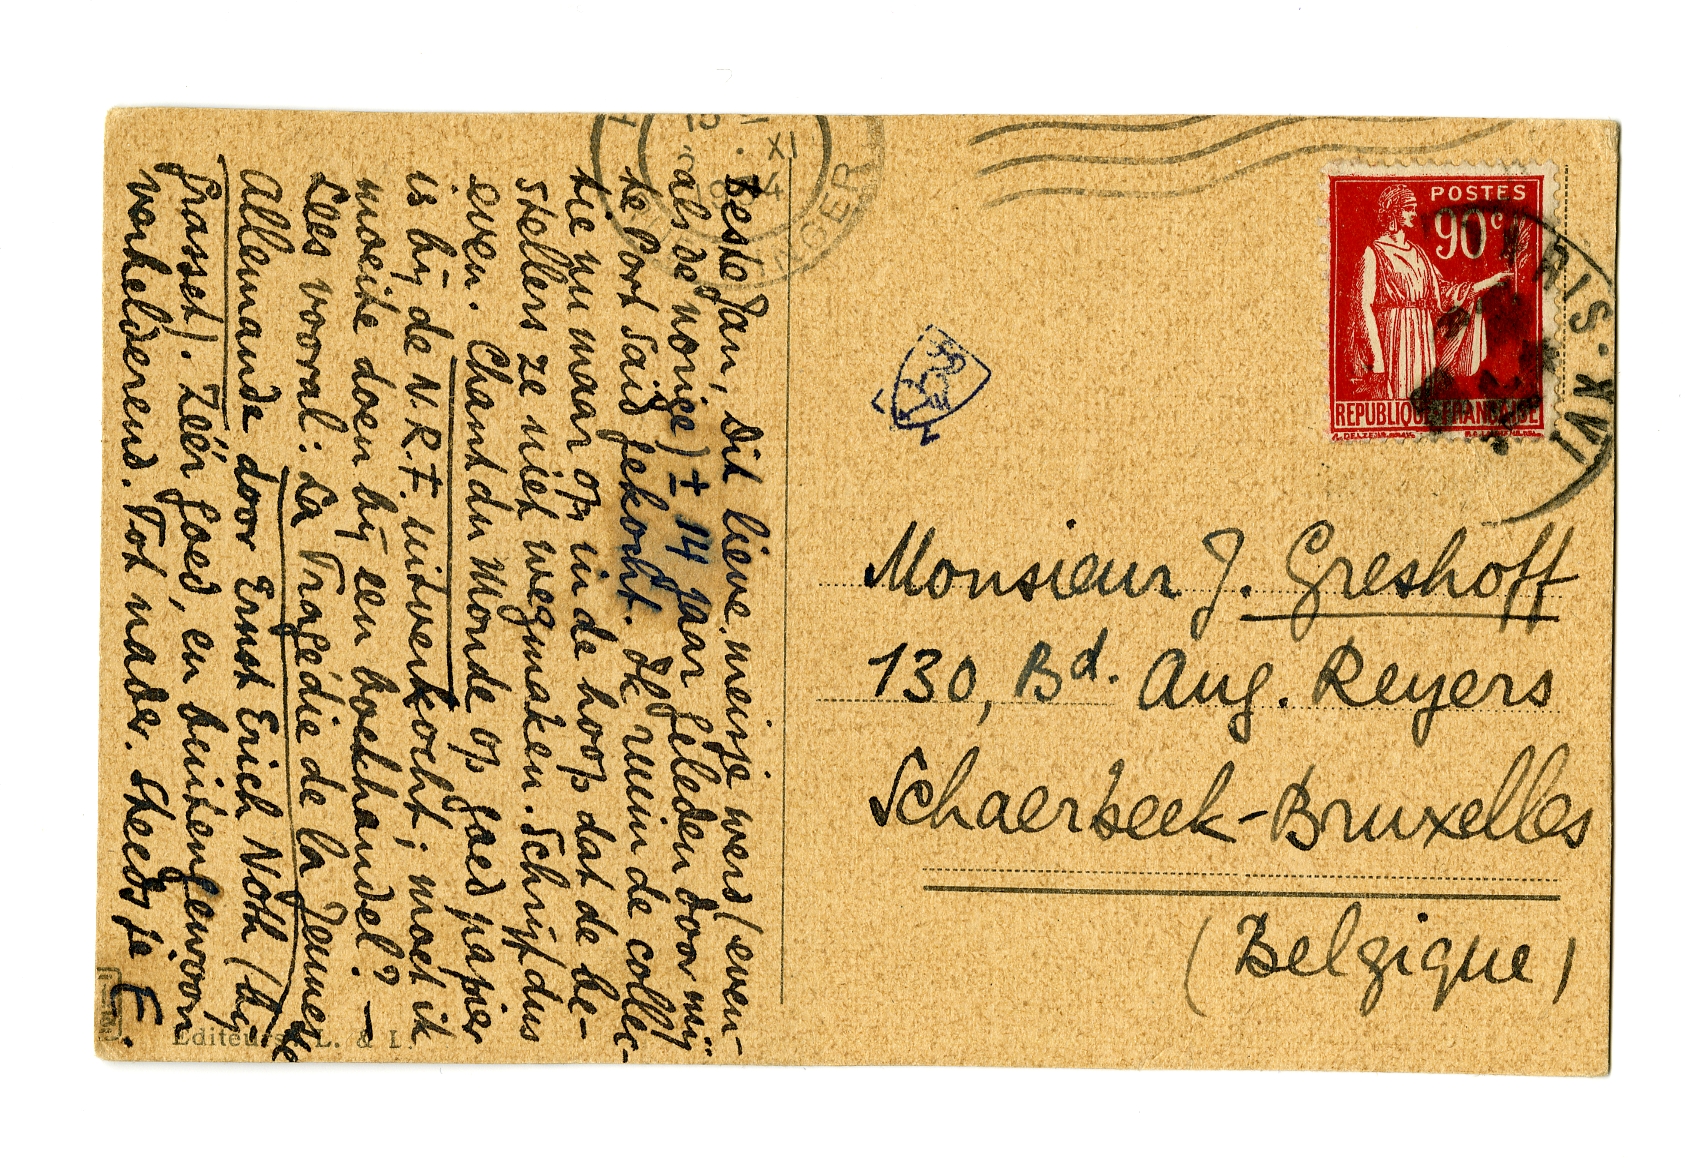 Beste Jan, Dit lieve meisje werd (even-
als de vorige) ± 14 jaar geleden door mij
te Port Said gekocht. Ik ruim de collec-
tie nu maar op in de hoop dat de be-
stellers ze niet wegmaken. Schrijf dus
even. Chant du Monde op goed papier
is bij de N.R.F. uitverkocht; moet ik
moeite doen bij een boekhandel? —
Lees vooral: La Tragédie de la Jeunesse
Allemande door Ernst Erich Noth (bij
Grasset). Zéér goed, en buitengewoon
verhelderend. Tot nader. Steeds je
E.
Editeurs L. & L.
XI
POSTES
90c
REPUBLIQUE FRANÇAISE
PARIS·XVI
Monsieur J. Greshoff
130, Bd. Aug. Reyers
Schaerbeek-Bruxelles
(Belgique)